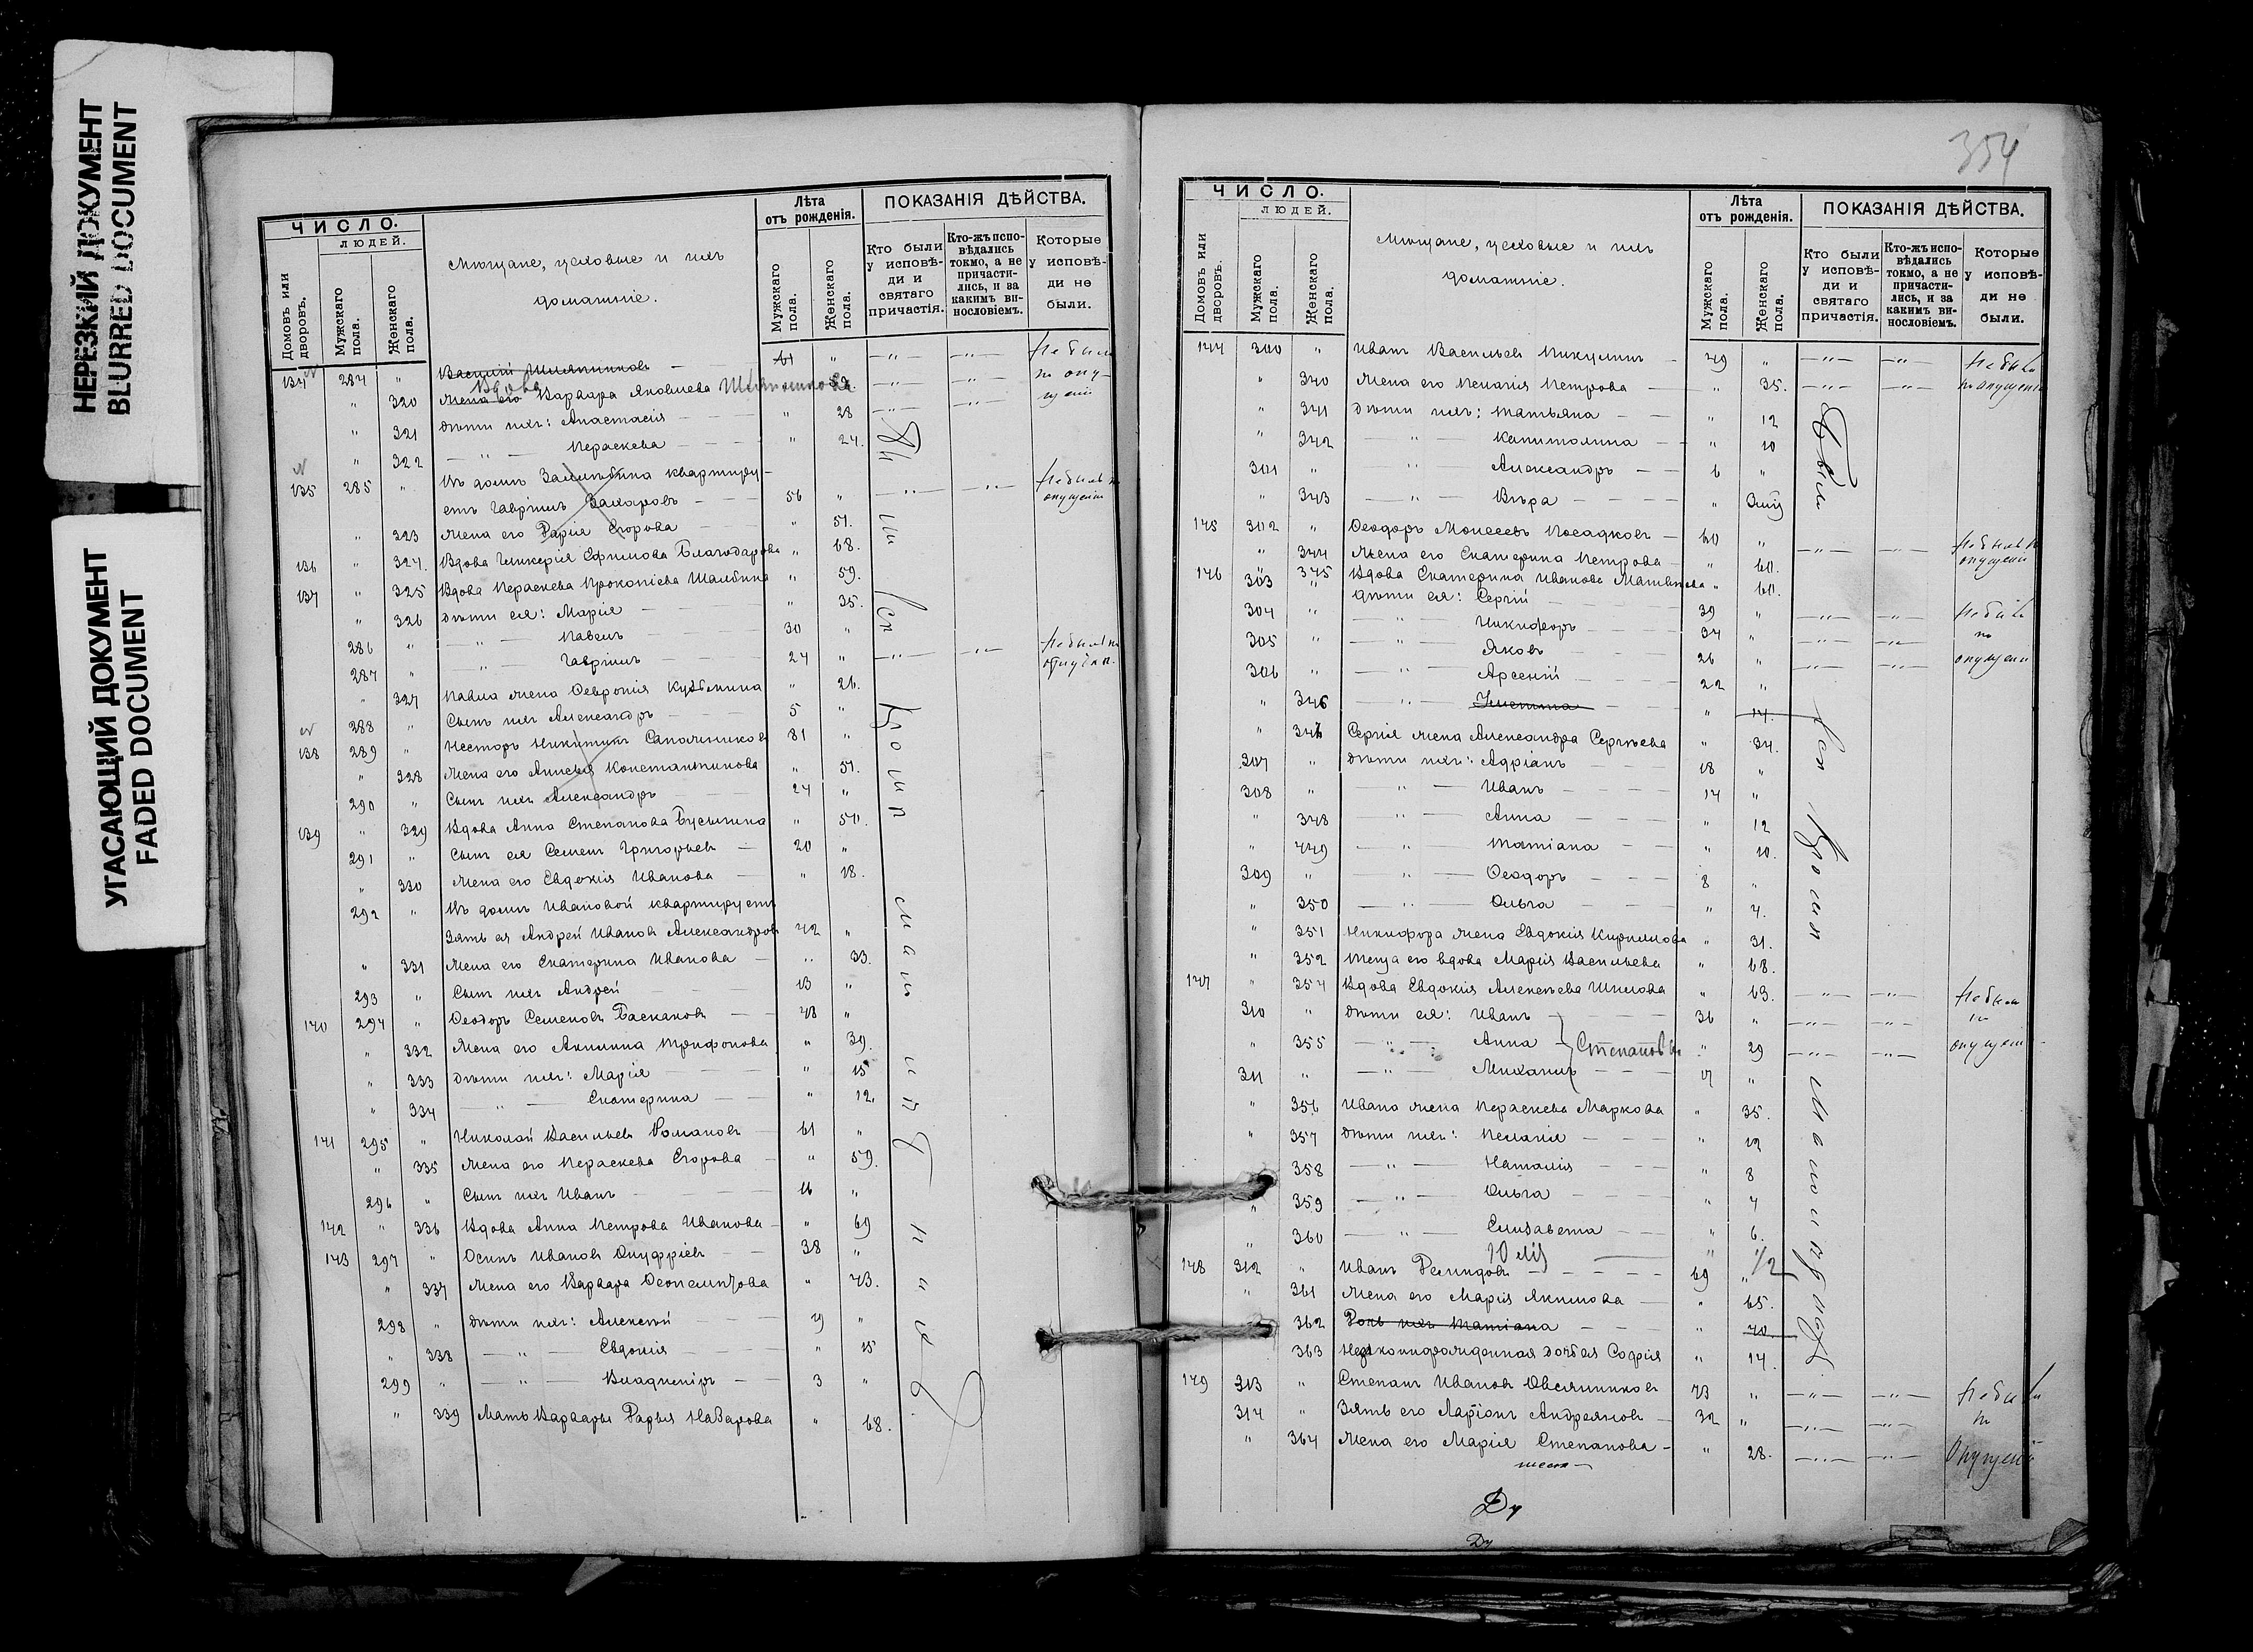 НЕРЕЗКИЙ ДОКУМЕНТ
BLURRED DOCUMENT
УГАСАЮЩИЙ ДОКУМЕНТ
FADED DOCUMENT
ЧИСЛО.
ЛЮДЕЙ.
Домовъ или дворовъ.
Мужскаго пола.
Женскаго пола.
Мѣщане, цеховые и ихъ
домашніе.
Лѣта
отъ рожденія.
Мужскаго пола.
Женскаго пола.
ПОКАЗАНІЯ ДѢЙСТВА.
Кто были у исповѣ-ди и святаго причастія.
Кто-жъ испо-вѣдались токмо, а не причасти-лись, и за какимъ ви-нословіемъ.
Которые у исповѣ-ди не были.
134 284 " Василій Шляпниковъ — 61 " —"— —"— Не были
" 320 Вдова Варвара Яковлева —"— —"— по опу-
" 321 дѣти ихъ: Анастасія " 28 —"— —"— щенію
" 322 —"— Параскева — " 24.
135 285 " Въ домѣ квартиру-
етъ Гавріилъ Захаровъ — 56 " —"— —"—
" 323 Жена его Дарія Егорова " 51.
136 " 324. Вдова Гликерія Ефимова Благодарова " 68.
137 " 325 Вдова Параскева Прокопіева " 59.
" 326 дѣти ея: Марія — " 35.
286 " —"— Павелъ 30 "
287 " —"— Гавріилъ 24 " —"— —"—
" 327 Павла жена Февронія Кузьмина " 26.
288 " Сынъ ихъ Александръ 5 "
138 289 " Несторъ Никитинъ Сапожниковъ 81 "
" 328 Жена его Константинова " 51.
290 " Сынъ ихъ Александръ 24 "
139 " 329 Вдова Анна Степанова Бусыгина " 50.
291 " Сынъ ея Семенъ Григорьевъ — 20 "
" 330 Жена его Евдокія Иванова — " 18.
292 " Въ домѣ Ивановой квартируетъ
Зять ея Андрей Ивановъ Александровъ 42 "
" 331 Жена его Екатерина Иванова — " 33.
293 " Сынъ ихъ Андрей 13 "
140 294 " Ѳеодоръ Семеновъ Баскаковъ — 48 "
" 332 Жена его Акилина Трифонова " 39.
" 333 дѣти ихъ: Марія " 15
" 334 —"— Екатерина — " 12.
141 295 " Николай Васильевъ Романовъ — 61 "
" 335 Жена его Параскева Егорова — " 59.
296 " Сынъ ихъ Иванъ 16 "
142 " 336 Вдова Анна Петрова Иванова — " 69
143 297 " Осипъ Ивановъ Онуфріевъ — 38 "
" 337 Жена его Варвара Ѳеопемптова " 43.
298 " дѣти ихъ: Алексѣй 19 "
" 338 —"— Евдокія " 15
299 " —"— Владиміръ — 3 "
" 339 Мать Варвары Дарья Назарова " 68.
354
ЧИСЛО.
ЛЮДЕЙ.
Домовъ или дворовъ.
Мужскаго пола.
Женскаго пола.
Мѣщане, цеховые и ихъ
домашніе.
Лѣта
отъ рожденія.
Мужскаго пола.
Женскаго пола.
ПОКАЗАНІЯ ДѢЙСТВА.
Кто были у исповѣ-ди и святаго причастія.
Кто-жъ испо-вѣдались токмо, а не причасти-лись, и за какимъ ви-нословіемъ.
Которые у исповѣ-ди не были.
144 300 " Иванъ Васильевъ Никулинъ — 39 " —"— —"— Не были
" 340 Жена его Пелагія Петрова — " 35. —"— —"— по опущенію
" 341 дѣти ихъ: Татьяна — " 12
" 342 —"— Капитолина — " 10
301 " " Александръ — 6 "
" 343 —"— Вѣра "
145 302 " Ѳеодоръ Моисеевъ Посадковъ — 60 " —"— —"— Не были по
" 344 Жена его Екатерина Петрова — " 60. опущенію
146 " 345 Вдова Екатерина Иванова Матвѣева " 60.
303 " дѣти ея: Сергій 39 " —"— —"— Не были
304 " —"— Никифоръ 34 " —"— —"— по
305 " " Яковъ 26 " —"— —"— опущенію
306 " —"— Арсеній 22 "
" 346 —"— " 14.
" 346 Сергія жена Александра Сергѣева " 34.
307 " дѣти ихъ: Адріанъ 18 "
308 " —"— Иванъ 14 "
" 348 —"— Анна " 12
" 449 —"— Татіана — " 10.
309 " " Ѳеодоръ 8 "
" 350 —"— Ольга " 4.
" 351 Никифора жена Евдокія Кириллова " 31.
" 352 Теща его вдова Марія Васильева " 68.
147 " 354 Вдова Евдокія Алексѣева Шилова " 63. —"— —"— Не были
310 " дѣти ея: Иванъ 36 " —"— —"— по
" 355 —"— Анна Степановы " 29 —"— —"— опущенію
311 " —"— Михаилъ 17 "
" 356 Ивана жена Параскева Маркова " 35.
" 357 дѣти ихъ: Пелагія — " 12
358 —"— Наталія " 8
" 359 —"— Ольга " 7
" 360 —"— Елизавета — " 6.
Юлія " 1/2
148 312 " Иванъ Демидовъ 69 "
" 361 Жена его Марія Акимова — " 65.
362 Дочь ихъ Татіана " 40.
363 Незаконнорожденная дочь ея Софія " 14.
149 313 " Степанъ Ивановъ Овсянниковъ 73 " —"— —"— Не были
314 " Зять его Ларіонъ Андреяновъ — 32 " —"— —"— по
" 364 Жена его Марія Степанова — " 28. —"— —"— Опущенію